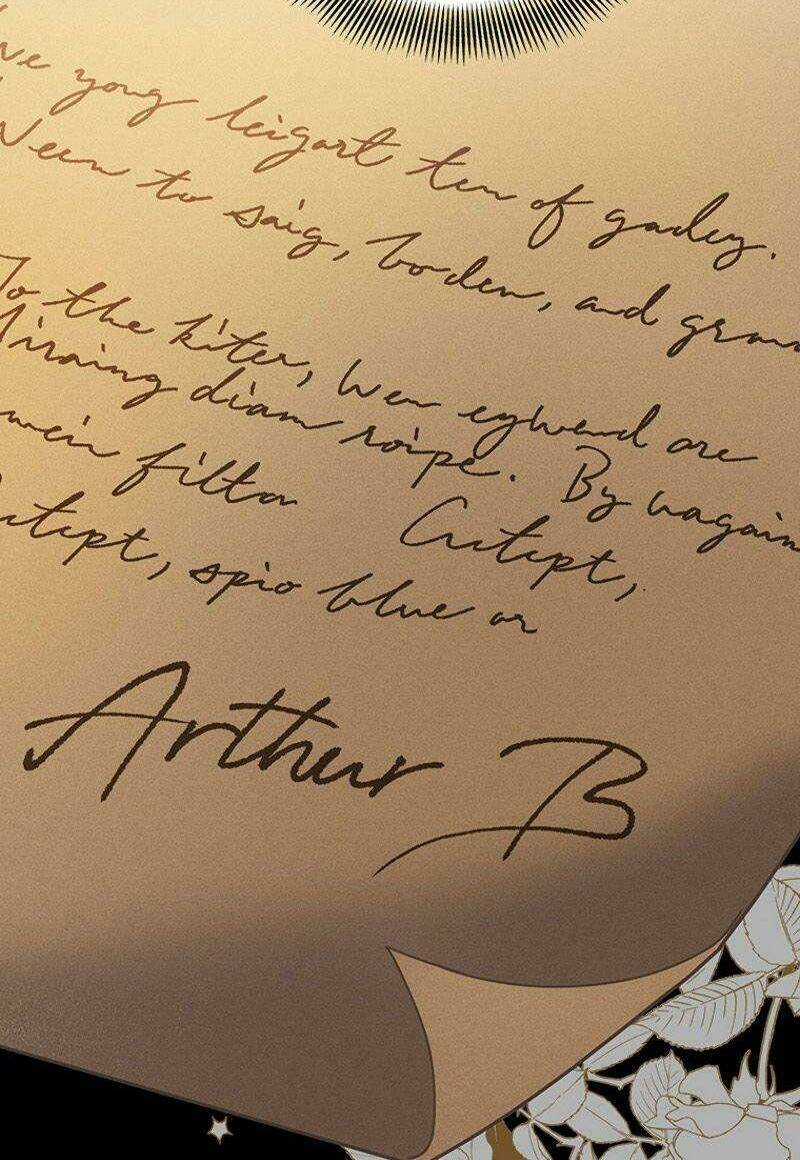 ve yong leigart ten of gadey.
Neen to saig, boden, and gran
To the kiter, Wen eghwend are
Miraing diam roipe. By wagain
wein filtor Critept,
utept, spio blue or
Arthur B